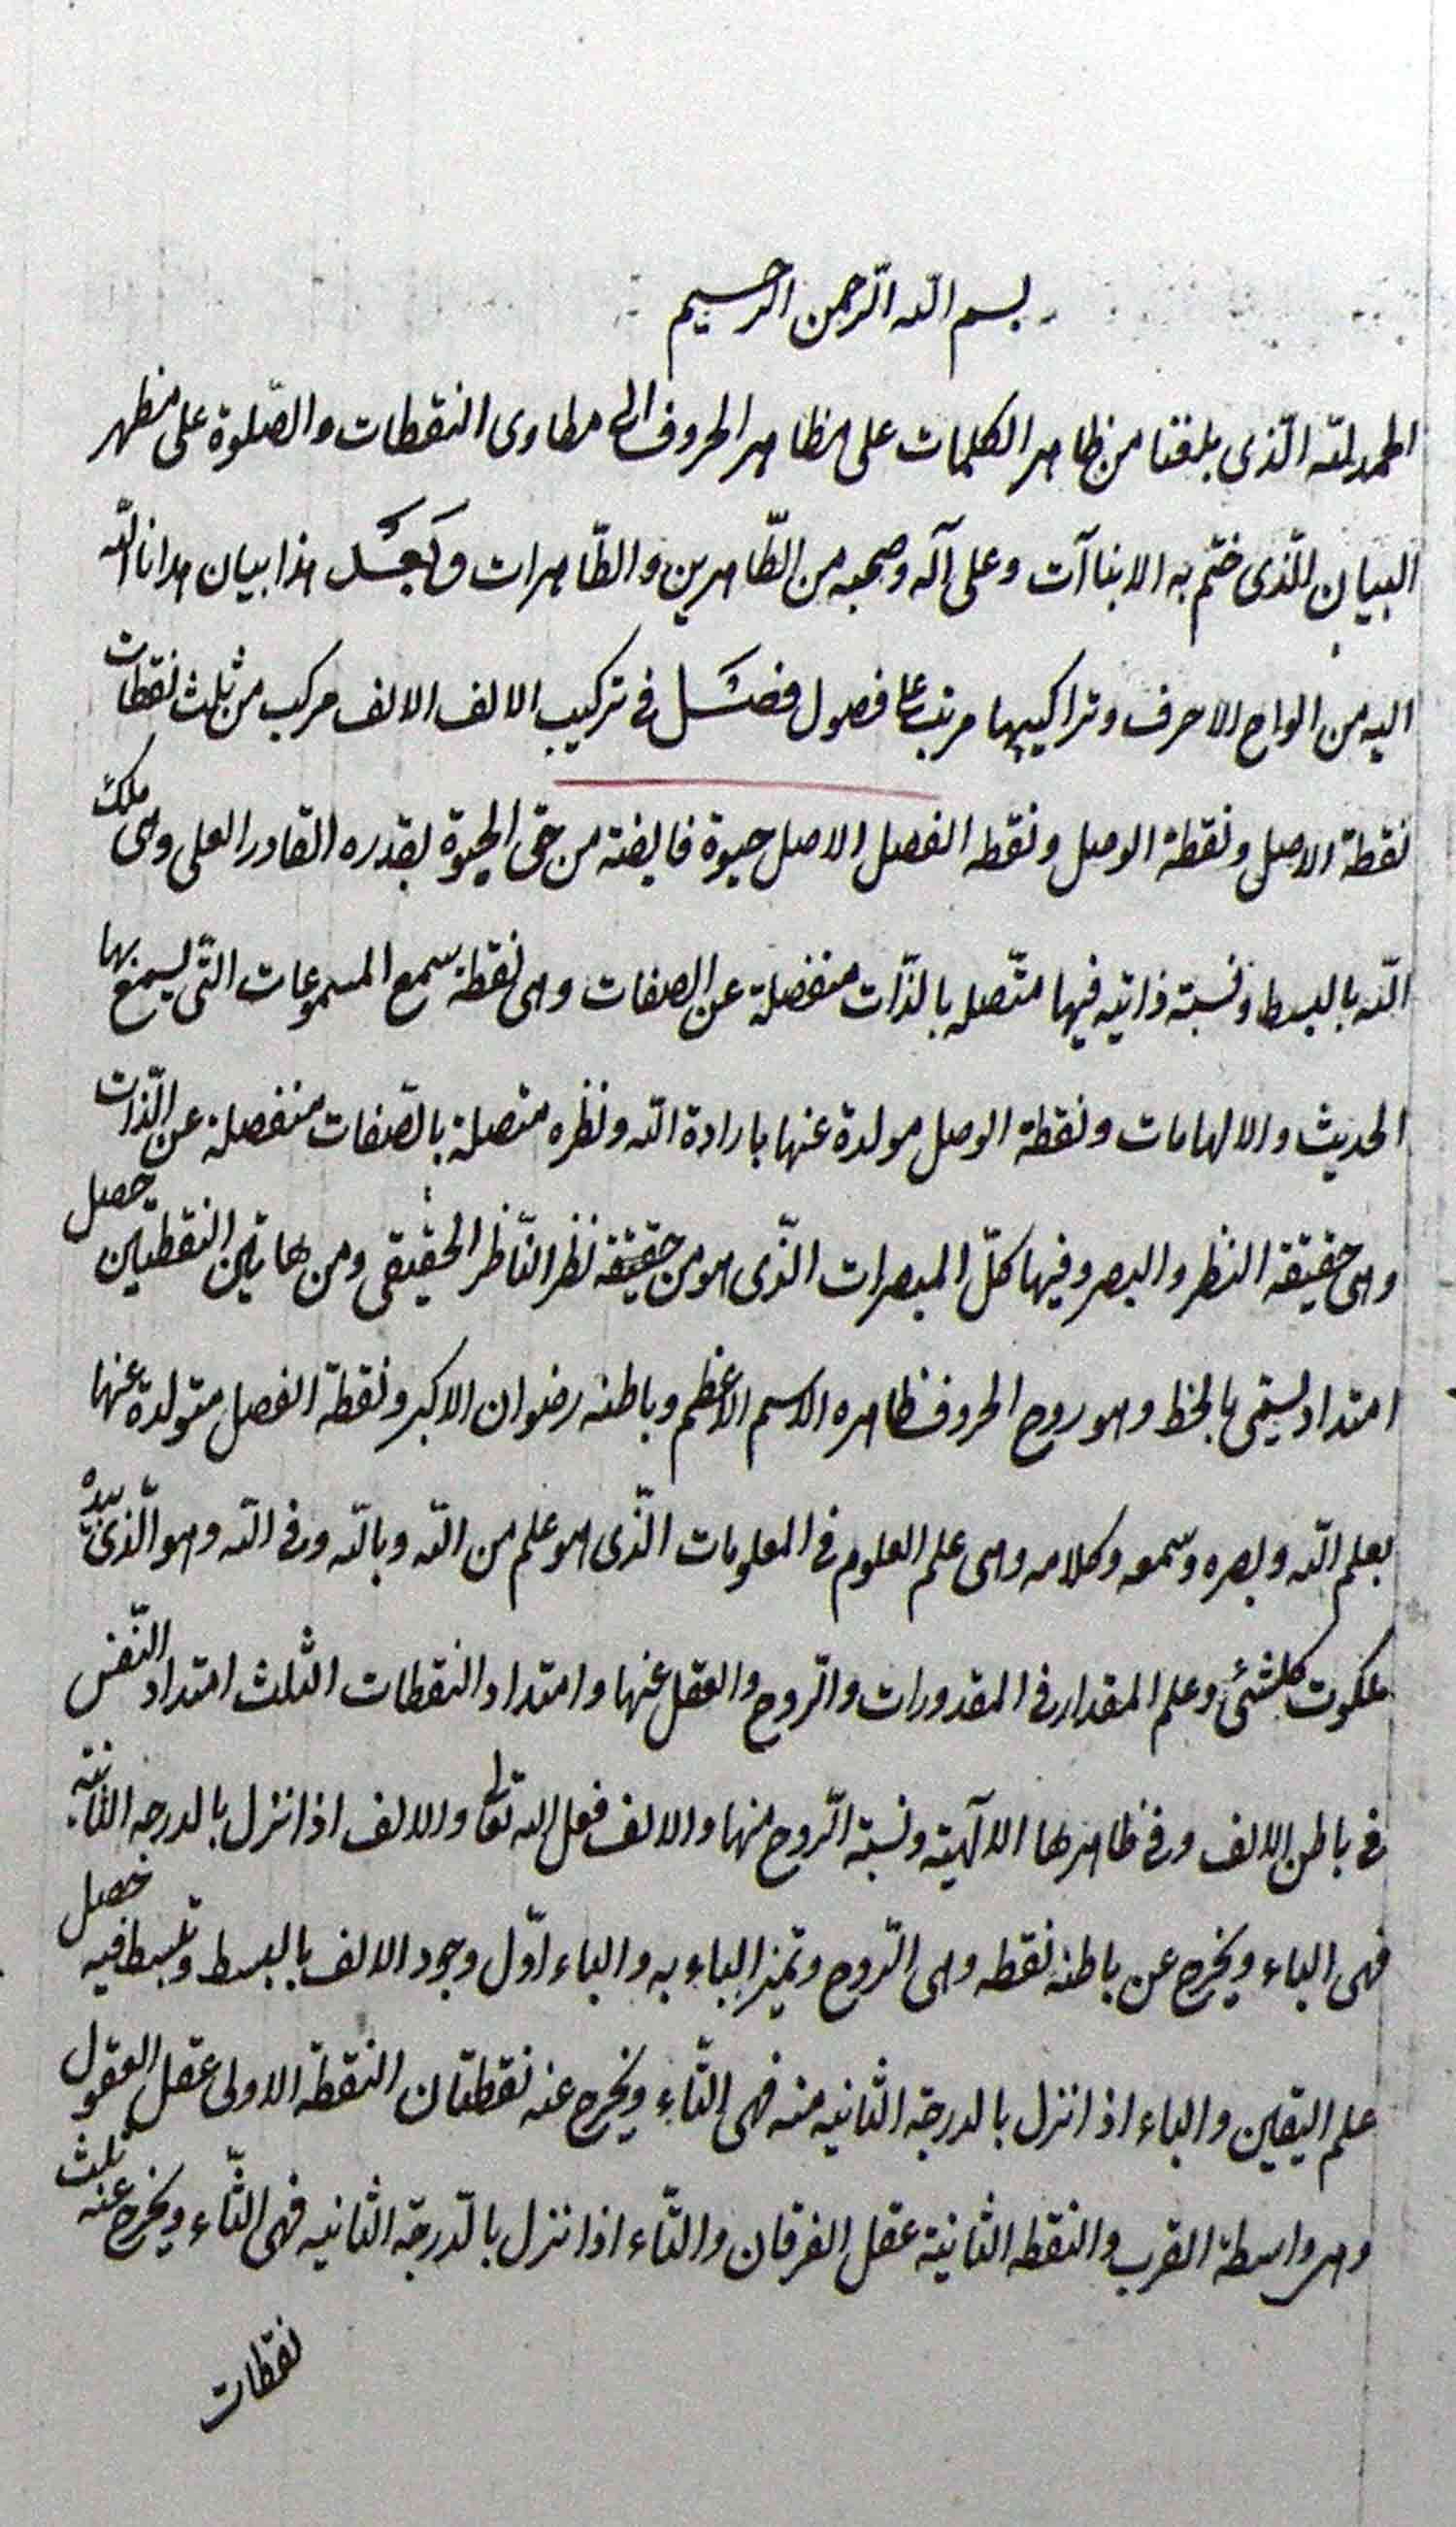 بسم الله الرّحمن الرحيم
الحمد لله الّذى بلغنا من ظاهر الكلمات على مظاهر الحروف الى مطاوى النقطات والصّلوة على مظهر
البيان الّذى ختم به الانباآت وعلى آله وصحبه من الطّاهرين والطّاهرات وبعد هذا بيان هدانا الله
اليه من الواح الاحرف وتراكيبها مرتب على فصول فصل فى تركيب الالف الالف مركب من ثلث نقطات
نقطة الاصل ونقطة الوصل ونقطه الفصل الاصل حيوة فايضة من حى الحيوة بقدره القادر العلى وهى ملك
الله بالبسط ونسبته ذاتيه فيها متّصله بالذّات منفصلة عن الصفات وهى نقطة سمع المسموعات الّتى يسمع بها
الحديث والالهامات ونقطة الوصل مولدة عنها بارادة الله ونظره متصلة بالصّفات منفصلة عن الذّات
وهى حقيقة النظر والبصر وفيها كلّ المبصرات الّذى هو من حقيقة نظر النّاظر الحقيقى ومن هاتين النقطتين حصل
امتداد يسمّى بالخط وهو روح الحروف فظاهره الاسم الاعظم وباطنه رضوان الاكبر ونقطة الفصل متولدة عنها
بعلم الله وبصره وسمعه وكلامه وهى علم العلوم فى المعلومات الّذى هو علم من الله وبالله وفى الله وهو الّذى بيده
ملكوت كلشئ وعلم المقدار فى المقدورات والرّوح والعقل عنها وامتداد النقطات الثلث امتداد النّفس
فى باطن الالف وفى ظاهرها الالهية ونسبة الرّوح منها والالف فعل الله تعالى والالف اذا نزل بالدرجه الثانية
فهى الباء ويخرج عن باطنه نقطه وهى الرّوح وتميز الباء به والباء اوّل وجود الالف بالبسط وتبسط فيه حصل
علم اليقين والباء اذا نزل بالدرجة الثانيه منه فهى التّاء ويخرج عنه نقطتان النقطة الاولى عقل العقول
وهو واسطة القرب والنقطه الثانية عقل الفرقان والتّاء اذا نزل بالدّرجة الثانيه فهى الثّاء ويخرج عنه ثلث
نقطات